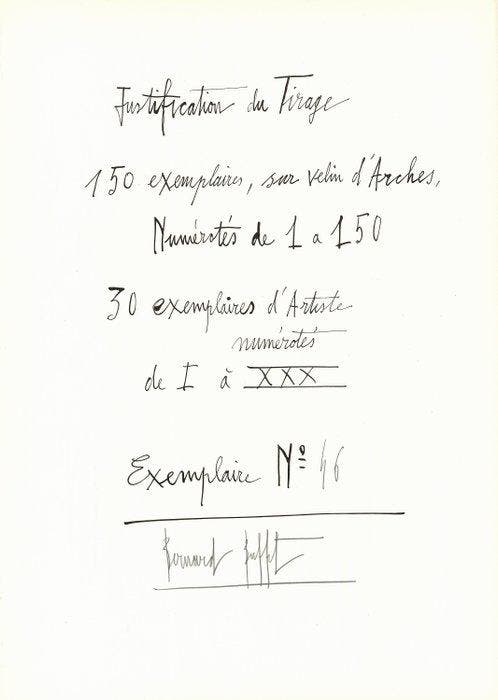 Justification du Tirage
150 exemplaires, sur velin d'Arches,
Numérotés de 1 a 150
30 exemplaires d'Artiste
numérotés
de I à XXX
Exemplaire Nº 46
Bernard Buffet